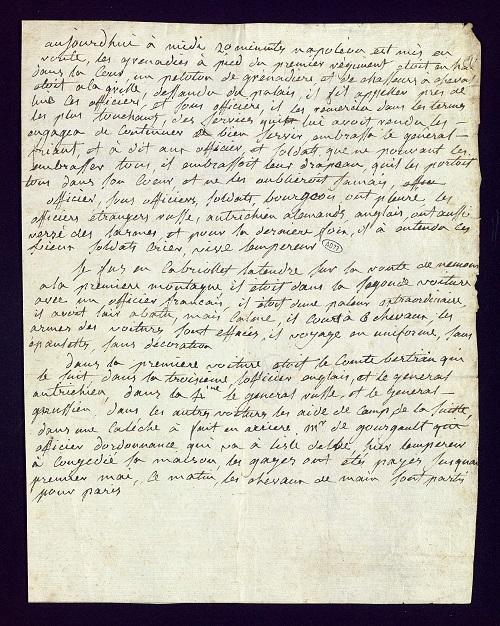 aujourdhui à midi 20 minuttes napoléon est mis en
route, les grenadiés à pied du premier régiment etoit en haie
dans la Cour, un peloton de grenadiers et de chasseurs a cheval
etoit a la grille, dessandu du palais, il fit appeller près de
lui les officiers, et sous officiers, il les remercia dans les termes
les plus touchant, des services quils lui avoit rendu les
engagea de continuer de bien servir embrassa le general
friant, et à dit aux officier et soldats que ne pouvant les
embrasser tous il embrassoit leur drapeau, quil les portoit
tous dans son Coeur et ne les oublieroit jamais,
officier, sous officiers, soldats, bourgeois, ont pleuré, les
officiers étrangers russe, autrichien alemands, anglais, ont aussi
versé des larmes et pour la derniere fois, il à entendu ces
vieux soldats crier, vive lempereur
Je fus en Cabriollet latendre sur la route de nemours
a la premiere montagne il etoit dans la segonde voiture
avec un officier francais, il etoit dune paleur extraordinaire
il avoit lair abatu, mais Calme, il Court à 6 chevaux, les
armes des voitures sont effacés, il voyage en uniforme, sans
epaulette, sans décoration
Dans la premiere voiture etoit le Comte bertran qui
le suit, dans la troisieme lofficier anglais, et le general
autrichien, dans la 4eme le general russe, et le General
prussien, dans les autres voitures les aide de Camp, de la suitte
dans une Calèche à suit en arriere, Mr de gourgault
officier dordonnance qui va à lisle delbe, hier lempereur
à Congédié sa maison, les gages ont étés payés jusquau
premier mai, Ce matin, les chevaux de main sont partis
pour paris